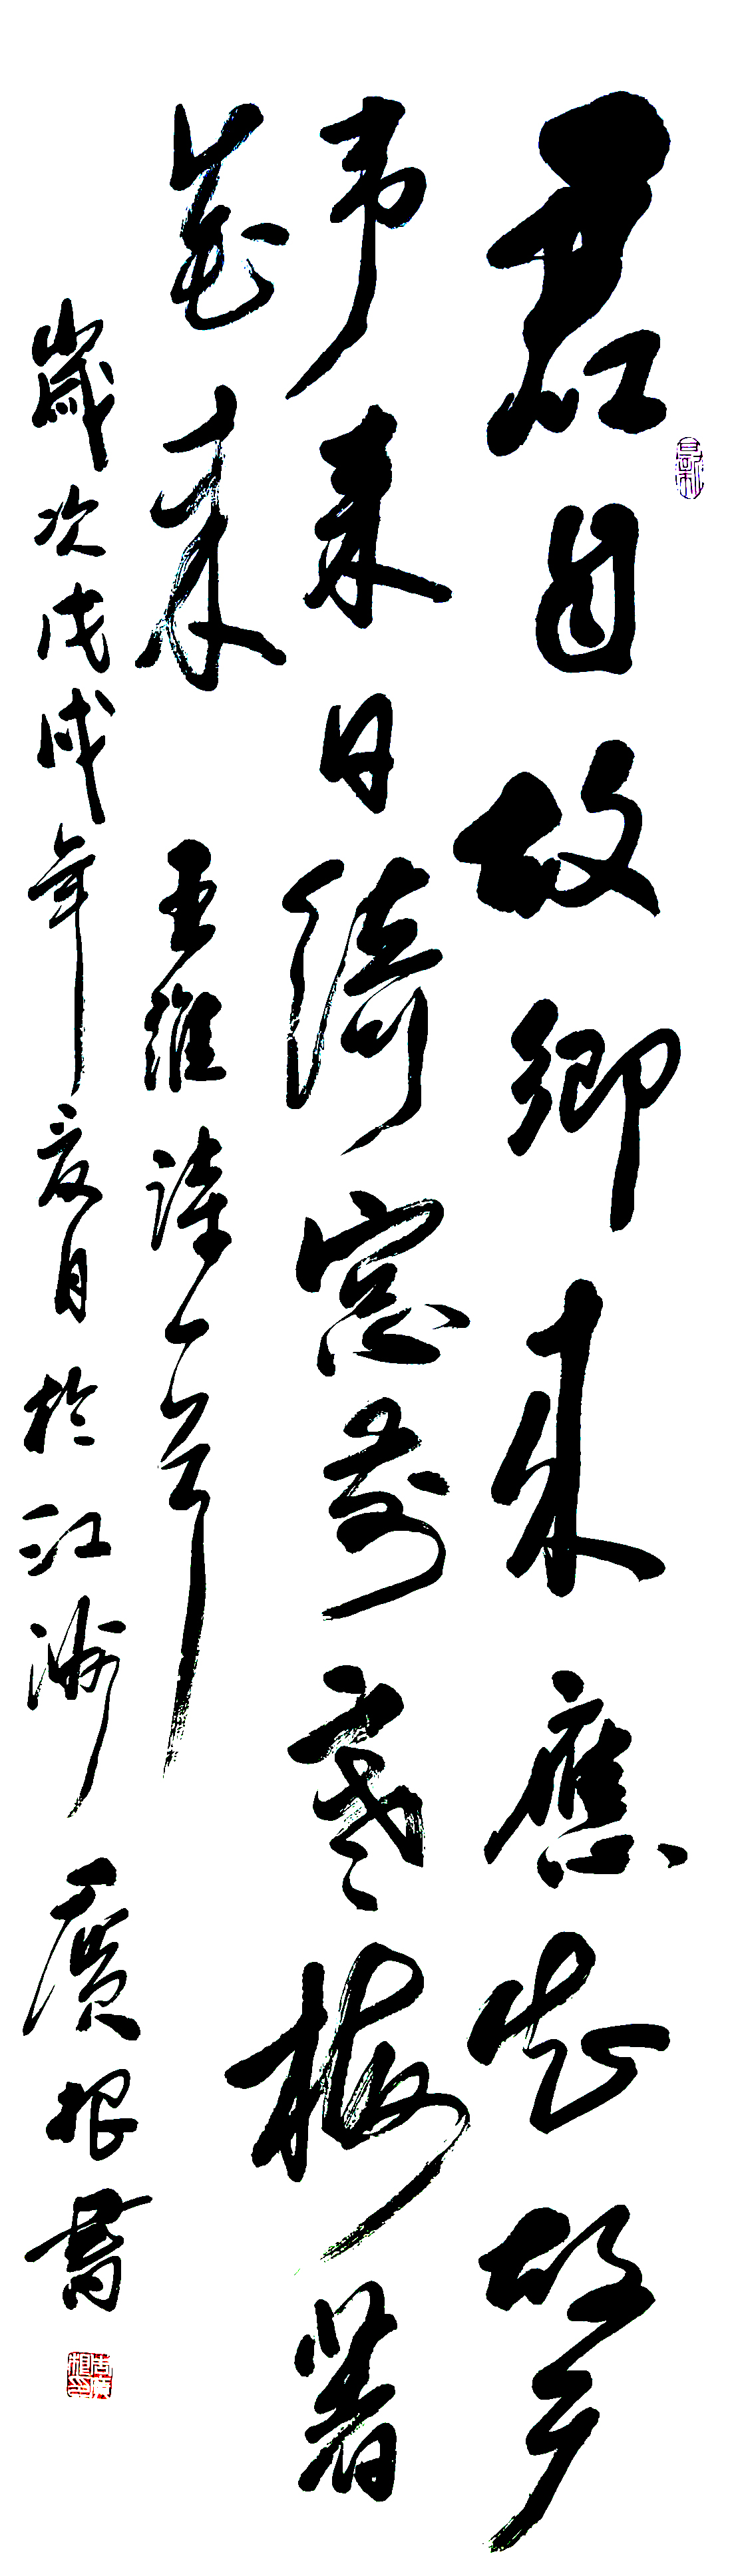 君自故鄉来應知故鄉
事来日綺窗前寒梅著
花未 王維詩一首
歲次戊戌年夏月於江洲 廣根書